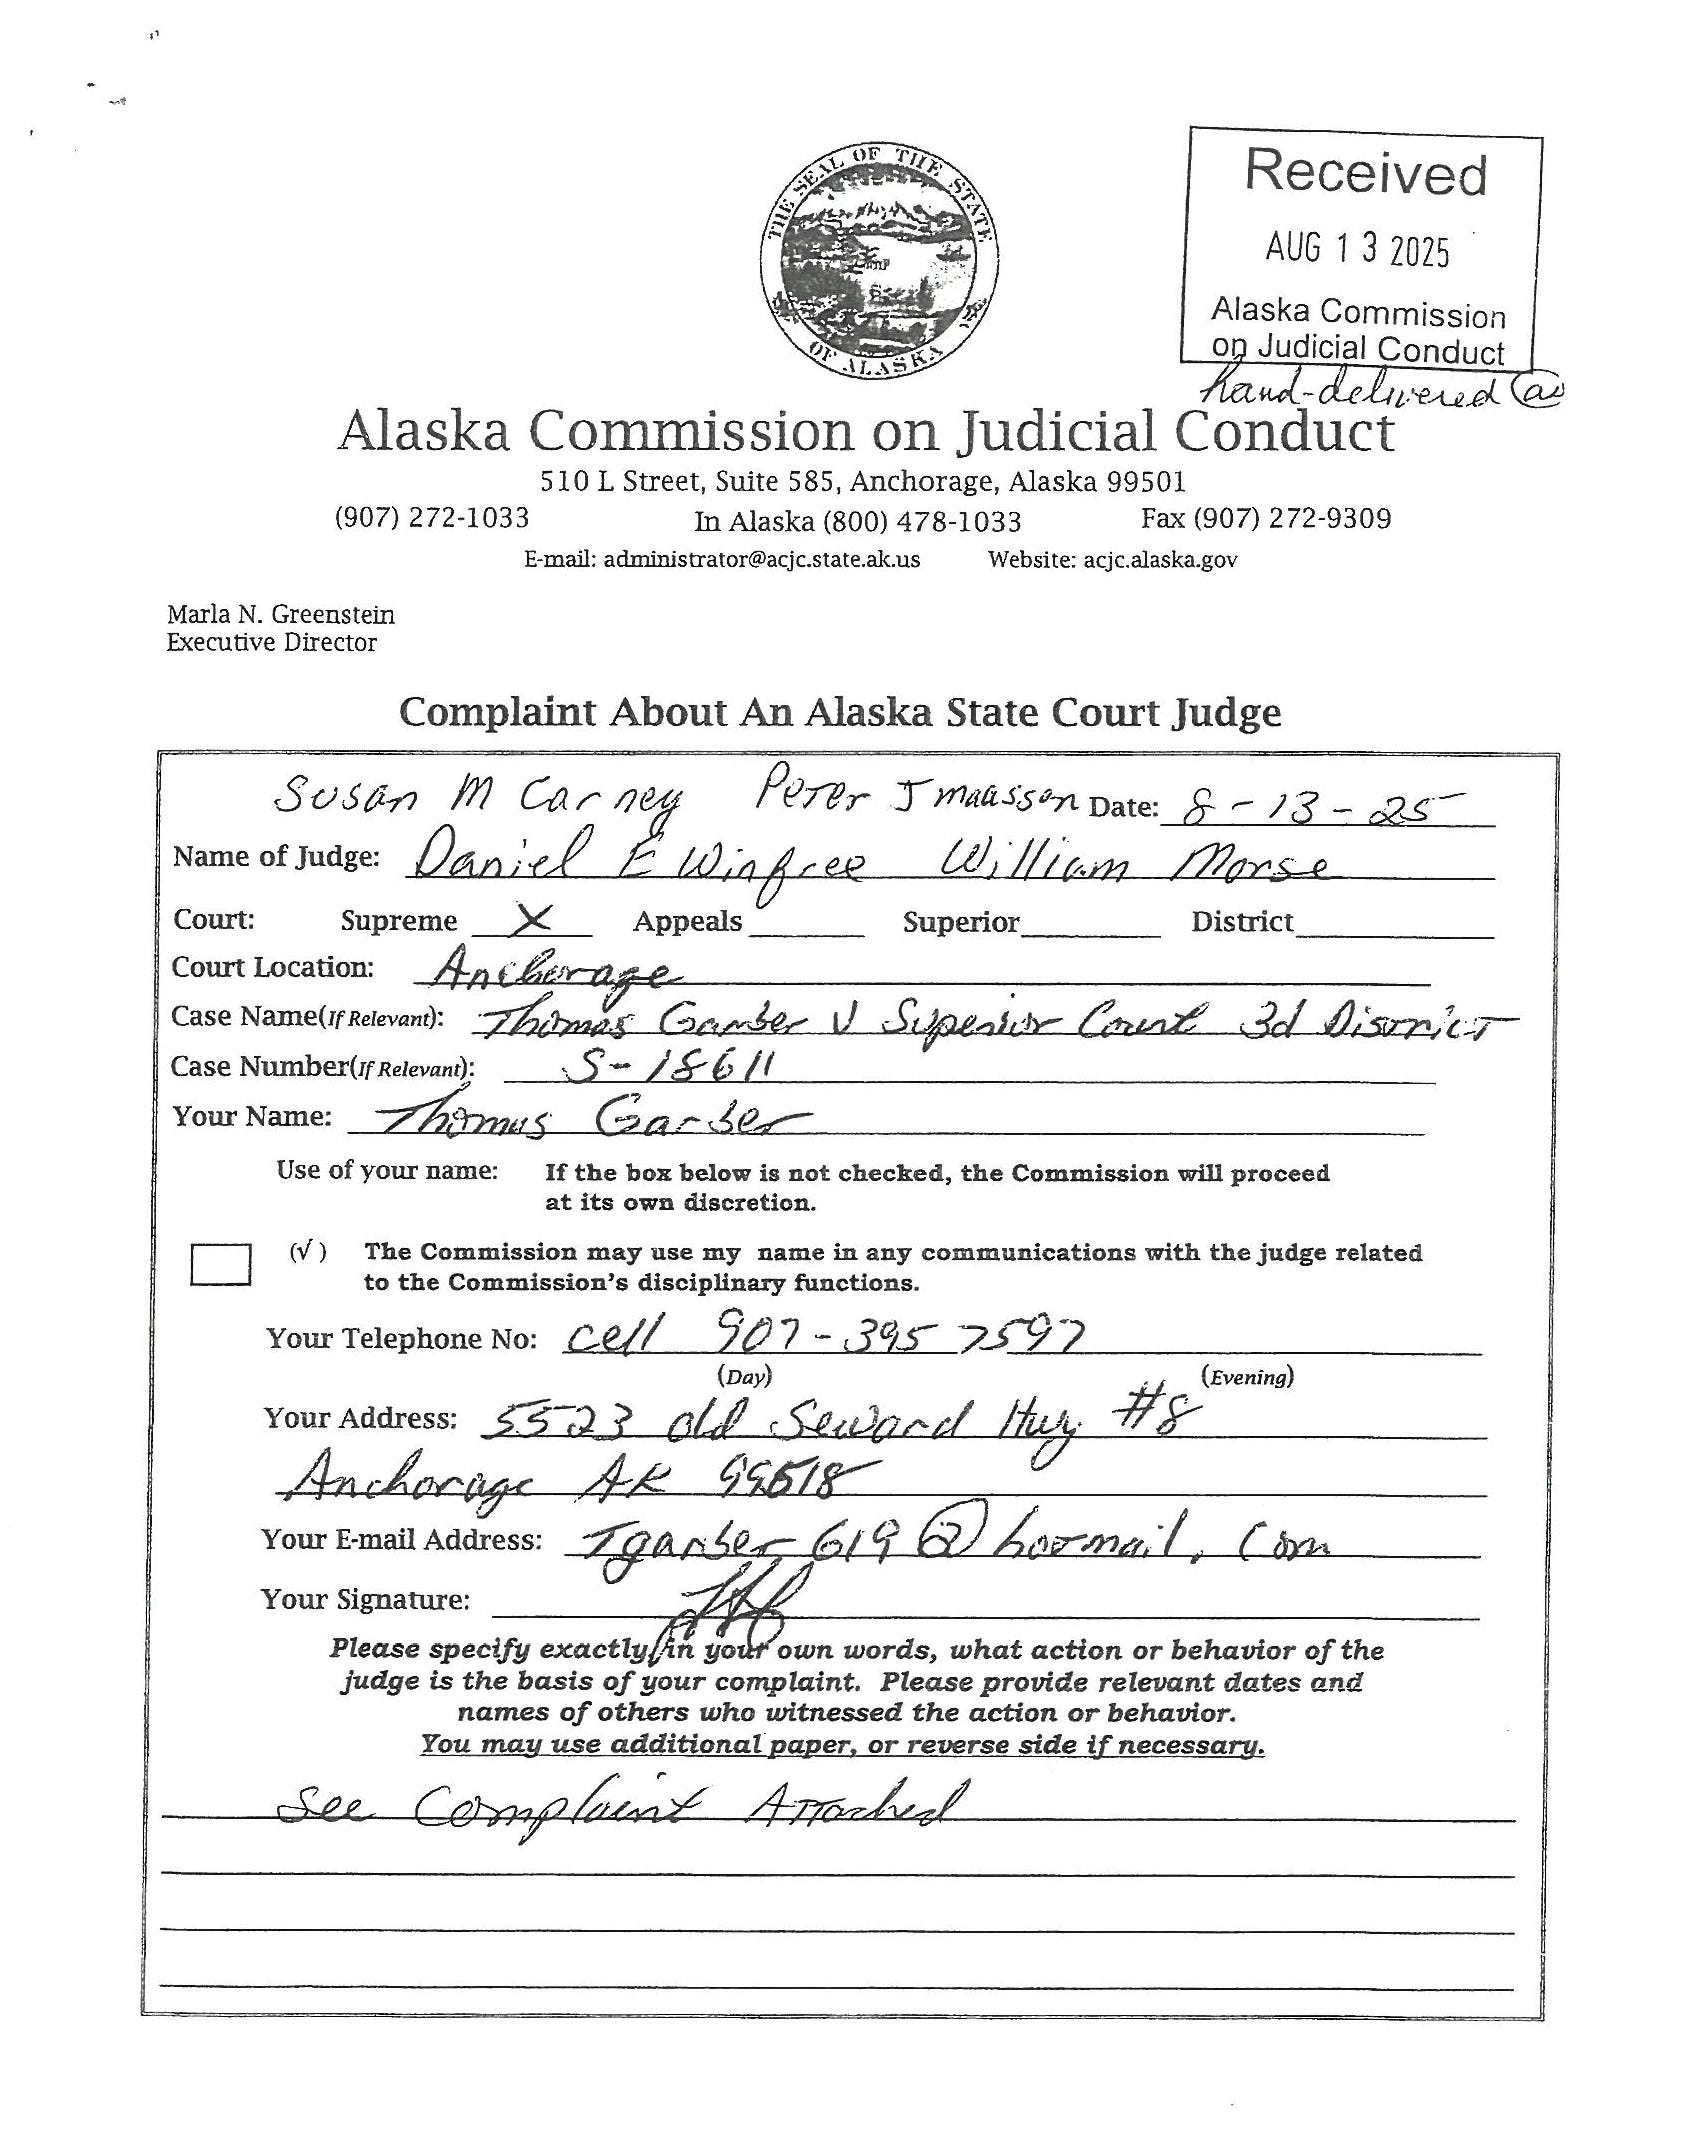 THE SEAL OF THE STATE OF ALASKA
Received
AUG 13 2025
Alaska Commission
on Judicial Conduct
hand-delivered
Alaska Commission on Judicial Conduct
510 L Street, Suite 585, Anchorage, Alaska 99501
(907) 272-1033 In Alaska (800) 478-1033 Fax (907) 272-9309
E-mail: administrator@acjc.state.ak.us Website: acjc.alaska.gov
Marla N. Greenstein
Executive Director
Complaint About An Alaska State Court Judge
Susan M Carney Peter J Maassen Date: 8-13-25
Name of Judge: Daniel E Winfree William Morse
Court: Supreme X Appeals Superior District
Court Location: Anchorage
Case Name(If Relevant): Thomas Garber V Superior Court 3d District
Case Number(If Relevant): S-18611
Your Name: Thomas Garber
Use of your name: If the box below is not checked, the Commission will proceed
at its own discretion.
(√) The Commission may use my name in any communications with the judge related
to the Commission's disciplinary functions.
Your Telephone No: cell 907-395 7597
(Day) (Evening)
Your Address: 5523 old Seward Hwy #8
Anchorage AK 99518
Your E-mail Address: Tgarber619@hotmail.com
Your Signature:
Please specify exactly, in your own words, what action or behavior of the
judge is the basis of your complaint. Please provide relevant dates and
names of others who witnessed the action or behavior.
You may use additional paper, or reverse side if necessary.
See Complaint Attached